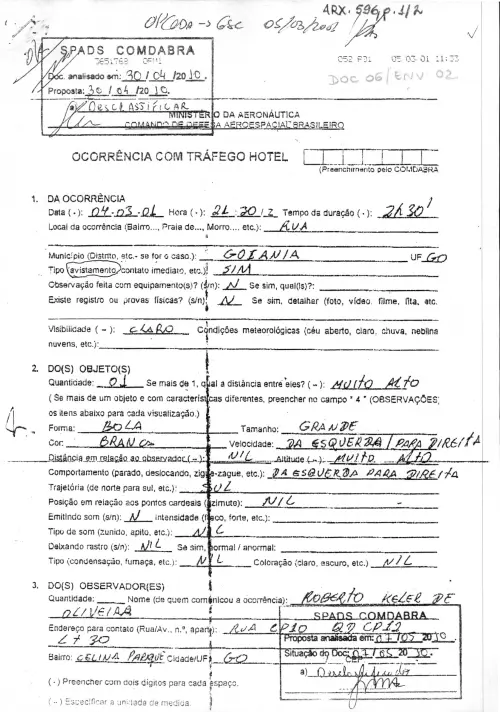 ARX. 596, p. 1/2
05/03/2001
SPADS COMDABRA
Doc. analisado em: 30 / 04 /20 10.
Proposta: 30 / 04 /20 10.
a) Desclassificar
052 P01 05 03 01 11:33
DOC 06/ENV 02
MINISTÉRIO DA AERONÁUTICA
COMANDO DE DEFESA AEROESPACIAL BRASILEIRO
OCORRÊNCIA COM TRÁFEGO HOTEL
(Preenchimento pelo COMDABRA
1. DA OCORRÊNCIA
Data ( - ): 04-03-01 Hora ( - ): 21:30 / Z Tempo da duração ( - ): 2h 30'
Local da ocorrência (Bairro..., Praia de..., Morro..., etc.): RUA
Município (Distrito, etc.- se for o caso.): GOIANIA UF GO
Tipo (avistamento, contato imediato, etc.): SIM
Observação feita com equipamento(s)? (s/n): N Se sim, qual(is)?:
Existe registro ou provas físicas? (s/n): N Se sim, detalhar (foto, vídeo, filme, fita, etc.
Visibilidade ( - ): CLARO Condições meteorológicas (céu aberto, claro, chuva, neblina
nuvens, etc.):
2. DO(S) OBJETO(S)
Quantidade: 01 Se mais de 1, qual a distância entre eles? ( - ): MUITO ALTO
( Se mais de um objeto e com características diferentes, preencher no campo " 4 " (OBSERVAÇÕES;
os itens abaixo para cada visualização.)
Forma: BOLA Tamanho: GRANDE
Cor: BRANCA Velocidade: DA ESQUERDA / PARA DIREITA
Distância em relação ao observador ( - ): NIL Altitude ( - ): MUITO ALTO
Comportamento (parado, deslocando, zigue-zague, etc.): DA ESQUERDA PARA DIREITA
Trajetória (de norte para sul, etc.): SUL
Posição em relação aos pontos cardeais (azimute): NIL
Emitindo som (s/n): N intensidade (fraco, forte, etc.):
Tipo de som (zunido, apito, etc.): NIL
Deixando rastro (s/n): NIL Se sim, normal / anormal:
Tipo (condensação, fumaça, etc.): NIL Coloração (claro, escuro, etc.) NIL
3. DO(S) OBSERVADOR(ES)
Quantidade: Nome (de quem comunicou a ocorrência): ROBERTO KELER DE
OLIVEIRA
Endereço para contato (Rua/Av., n.º, apart): RUA CP10 QD CP12
LT 30
Bairro: CELINA PARQUE Cidade/UF: GO
( - ) Preencher com dois dígitos para cada espaço.
( -- ) Especificar a unidade de medida.
SPADS COMDABRA
Proposta analisada em: 07 / 05 20 10
Situação do Doc: 07 / 05 20 10.
a) Desclassificado